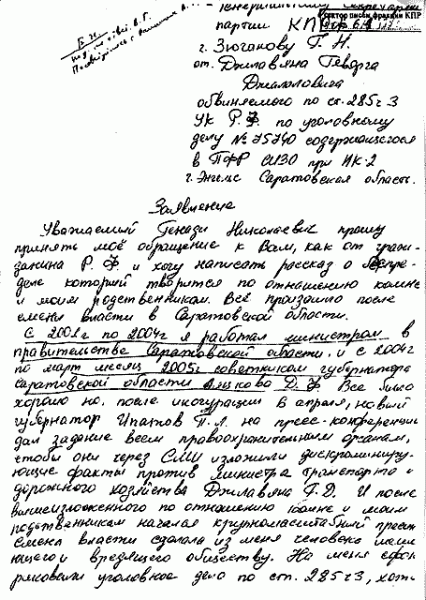 Генеральному секретарю
партии КП
сектор писем фракции КПР
г. Зюганову Г. Н.
от. Джлавяна Геворга
Джалоловига
обвиняемого по ст. 285 ч 3
УК Р.Ф. по уголовному
делу № 75740 содержащегося
в ПФР СИЗО при ИК-2
г. Энгельс Саратовская область.
Заявление
Уважаемый Генади Николаевич прошу
принять моё обращение к Вам, как от граж-
занина Р. Ф и хочу написать рассказ о беспре-
деле который творится по отношению комне
и моим родственникам. Всё произошло после
смены власти в Саратовской области.
С 2002 г по 2004г я работал министром в
правительстве Саратовской области. и с 2004г
по март месяц 2005г советником губернатора
Саратовской области Аяцкова Д. Ф. Все было
хорошо но, после иногурации в апреля, новый
губернатор Ипатов П. Л. на пресс-конференции
дал задание всем правоохранительным органам,
чтобы они через СМИ изложили дискриминиру-
ющие факты против министра транспорта и
дорожного хозяйства Джлавяна Г. Д. И после
вышеизложенного по отношению комне и моим
родственникам началая крупномасштабный пресинг
Смена власти сделала из меня человека
ющего и вредящего обществу. На меня сфаб
риковали уголовное дело по ст. 285 ч 3, хотя